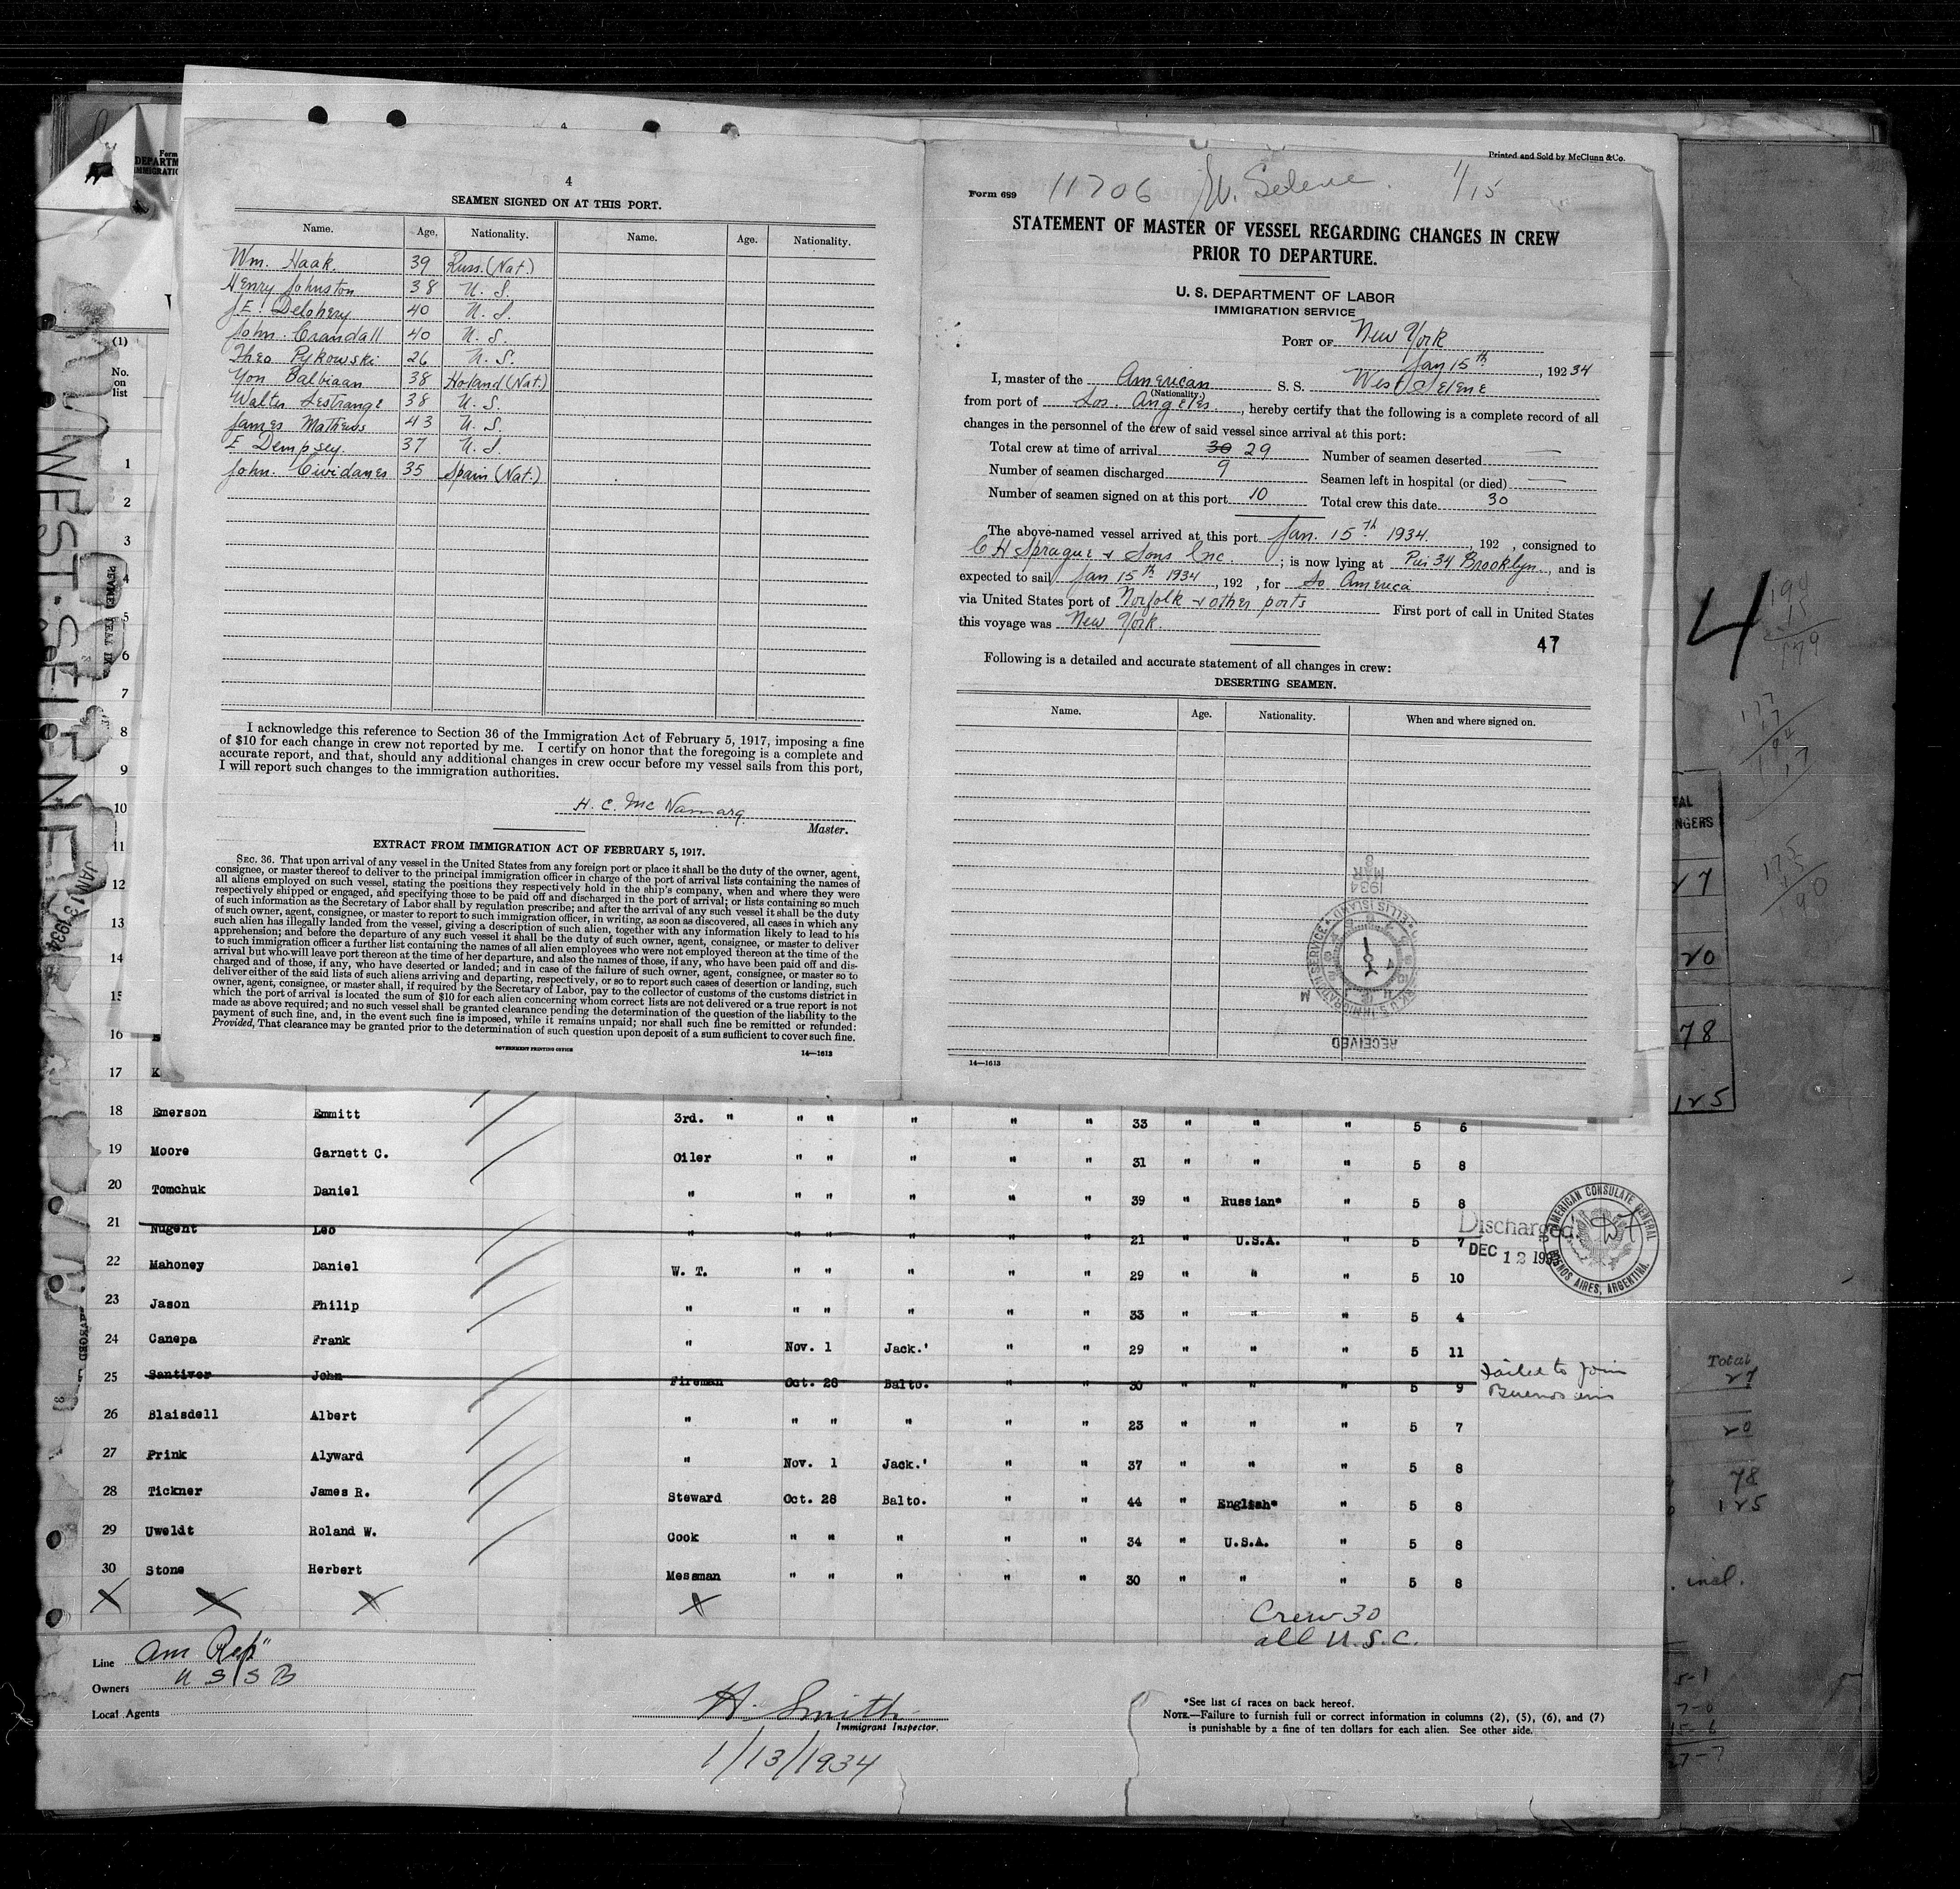 4
SEAMEN SIGNED ON AT THIS PORT.
Name. Age. Nationality. Name. Age. Nationality.
Wm. Haak. 39 Russ. (Nat.)
Henry Johnston 38 U. S.
J.E. Delohery 40 U. S.
John. Crandall 40 U. S.
Theo Pykowski 26 U. S.
Yon Balbiaan 38 Holand (Nat.)
Walter Lestrange 38 U. S.
James Mathews 43 U. S.
E Dempsey. 37 U. S.
John. Cividanes 35 Spain (Nat.)
I acknowledge this reference to Section 36 of the Immigration Act of February 5, 1917, imposing a fine
of $10 for each change in crew not reported by me. I certify on honor that the foregoing is a complete and
accurate report, and that, should any additional changes in crew occur before my vessel sails from this port,
I will report such changes to the immigration authorities.
H. C. McNamara
Master.
EXTRACT FROM IMMIGRATION ACT OF FEBRUARY 5, 1917.
SEC. 36. That upon arrival of any vessel in the United States from any foreign port or place it shall be the duty of the owner, agent,
consignee, or master thereof to deliver to the principal immigration officer in charge of the port of arrival lists containing the names of
all aliens employed on such vessel, stating the positions they respectively hold in the ship's company, when and where they were
respectively shipped or engaged, and specifying those to be paid off and discharged in the port of arrival; or lists containing so much
of such information as the Secretary of Labor shall by regulation prescribe; and after the arrival of any such vessel it shall be the duty
of such owner, agent, consignee, or master to report to such immigration officer, in writing, as soon as discovered, all cases in which any
such alien has illegally landed from the vessel, giving a description of such alien, together with any information likely to lead to his
apprehension; and before the departure of any such vessel it shall be the duty of such owner, agent, consignee, or master to deliver
to such immigration officer a further list containing the names of all alien employees who were not employed thereon at the time of the
arrival but who will leave port thereon at the time of her departure, and also the names of those, if any, who have been paid off and dis-
charged and of those, if any, who have deserted or landed; and in case of the failure of such owner, agent, consignee, or master so to
deliver either of the said lists of such aliens arriving and departing, respectively, or so to report such cases of desertion or landing, such
owner, agent, consignee, or master shall, if required by the Secretary of Labor, pay to the collector of customs of the customs district in
which the port of arrival is located the sum of $10 for each alien concerning whom correct lists are not delivered or a true report is not
made as above required; and no such vessel shall be granted clearance pending the determination of the question of the liability to the
payment of such fine, and, in the event such fine is imposed, while it remains unpaid; nor shall such fine be remitted or refunded:
Provided, That clearance may be granted prior to the determination of such question upon deposit of a sum sufficient to cover such fine.
GOVERNMENT PRINTING OFFICE 14—1613
Printed and Sold by McClunn & Co.
Form 689 11706 W. Selene. 1/15
STATEMENT OF MASTER OF VESSEL REGARDING CHANGES IN CREW
PRIOR TO DEPARTURE.
U. S. DEPARTMENT OF LABOR
IMMIGRATION SERVICE
PORT OF New York
Jan 15th, 192 34
I, master of the American S. S. West Selene
(Nationality.)
from port of Los. Angeles., hereby certify that the following is a complete record of all
changes in the personnel of the crew of said vessel since arrival at this port:
Total crew at time of arrival 30 29 Number of seamen deserted
Number of seamen discharged 9 Seamen left in hospital (or died)
Number of seamen signed on at this port 10 Total crew this date 30
The above-named vessel arrived at this port Jan. 15th 1934., 192 , consigned to
C H Sprague & Sons Inc.; is now lying at Pier 34 Brooklyn, and is
expected to sail Jan 15th 1934, 192 , for So America
via United States port of Norfolk & other ports First port of call in United States
this voyage was New York.
47
Following is a detailed and accurate statement of all changes in crew:
DESERTING SEAMEN.
Name. Age. Nationality. When and where signed on.
RECEIVED
ELLIS ISLAND
1934
MAR
14—1613
(1)
No.
on
list
1
2
3
4
5
6
7
8
9
10
11
12
13
14
15
16
17 K
WEST SELENE
JAN 13 1934
18 Emerson Emmitt 3rd. " " " " " " 33 " " " 5 6
19 Moore Garnett C. Oiler " " " " " 31 " " " 5 8
20 Tomchuk Daniel " " " " " " 39 " Russian* " 5 8
21 Nugent Leo " " " " " " 21 " U.S.A. " 5 7 Discharged
DEC 12 193
AMERICAN CONSULATE GENERAL
BUENOS AIRES, ARGENTINA.
22 Mahoney Daniel W. T. " " " " " 29 " " " 5 10
23 Jason Philip " " " " " " 33 " " " 5 4
24 Canepa Frank " Nov. 1 Jack.' " " 29 " " " 5 11
25 Santiver John Fireman Oct. 28 Balto. " " 30 " " " 5 9 Failed to join
Buenos aires
26 Blaisdell Albert " " " " " " 23 " " " 5 7
27 Prink Alyward " Nov. 1 Jack.' " " 37 " " " 5 8
28 Tickner James R. Steward Oct. 28 Balto. " " 44 " English* " 5 8
29 Uweldt Roland W. Cook " " " " " 34 " U.S.A. " 5 8
30 Stone Herbert Messman " " " " " 30 " " " 5 8
Crew 30
all U.S.C.
Line Am Rep"
Owners U S S B
Local Agents
H. Smith
Immigrant Inspector.
1/13/1934
*See list of races on back hereof.
NOTE.—Failure to furnish full or correct information in columns (2), (5), (6), and (7)
is punishable by a fine of ten dollars for each alien. See other side.
4
179
78
125
Total
27
20
78
125
incl.